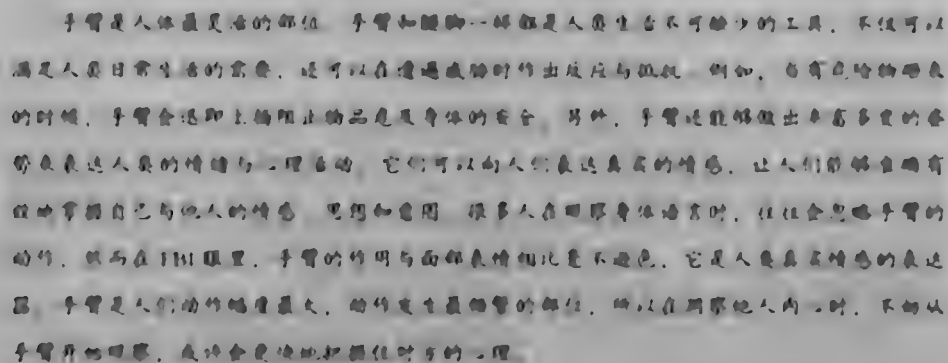 手臂是人体最灵活的部位 手臂和腿脚一样都是人类生存不可缺少的工具，不仅可以
满足人类日常生活的需要，还可以在遭遇威胁时作出反应与抵抗 例如，当有危险物袭来
的时候，手臂会迅即上扬阻止物品危及身体的安全 另外，手臂还能够做出丰富多变的姿
势来表达人类的情绪与心理活动，它们可以向人们表达真实的情感，让人们能够准确有
效地掌握自己与他人的情感 思想和意图 很多人在观察身体语言时，往往会忽略手臂的
动作，然而在FBI眼里，手臂的作用与面部表情相比毫不逊色，它是人类真实情感的表达
器，手臂是人们动作幅度最大，动作发生最频繁的部位，所以在洞察他人内心时，不妨从
手臂开始观察，或许会更快地把握住对方的心理